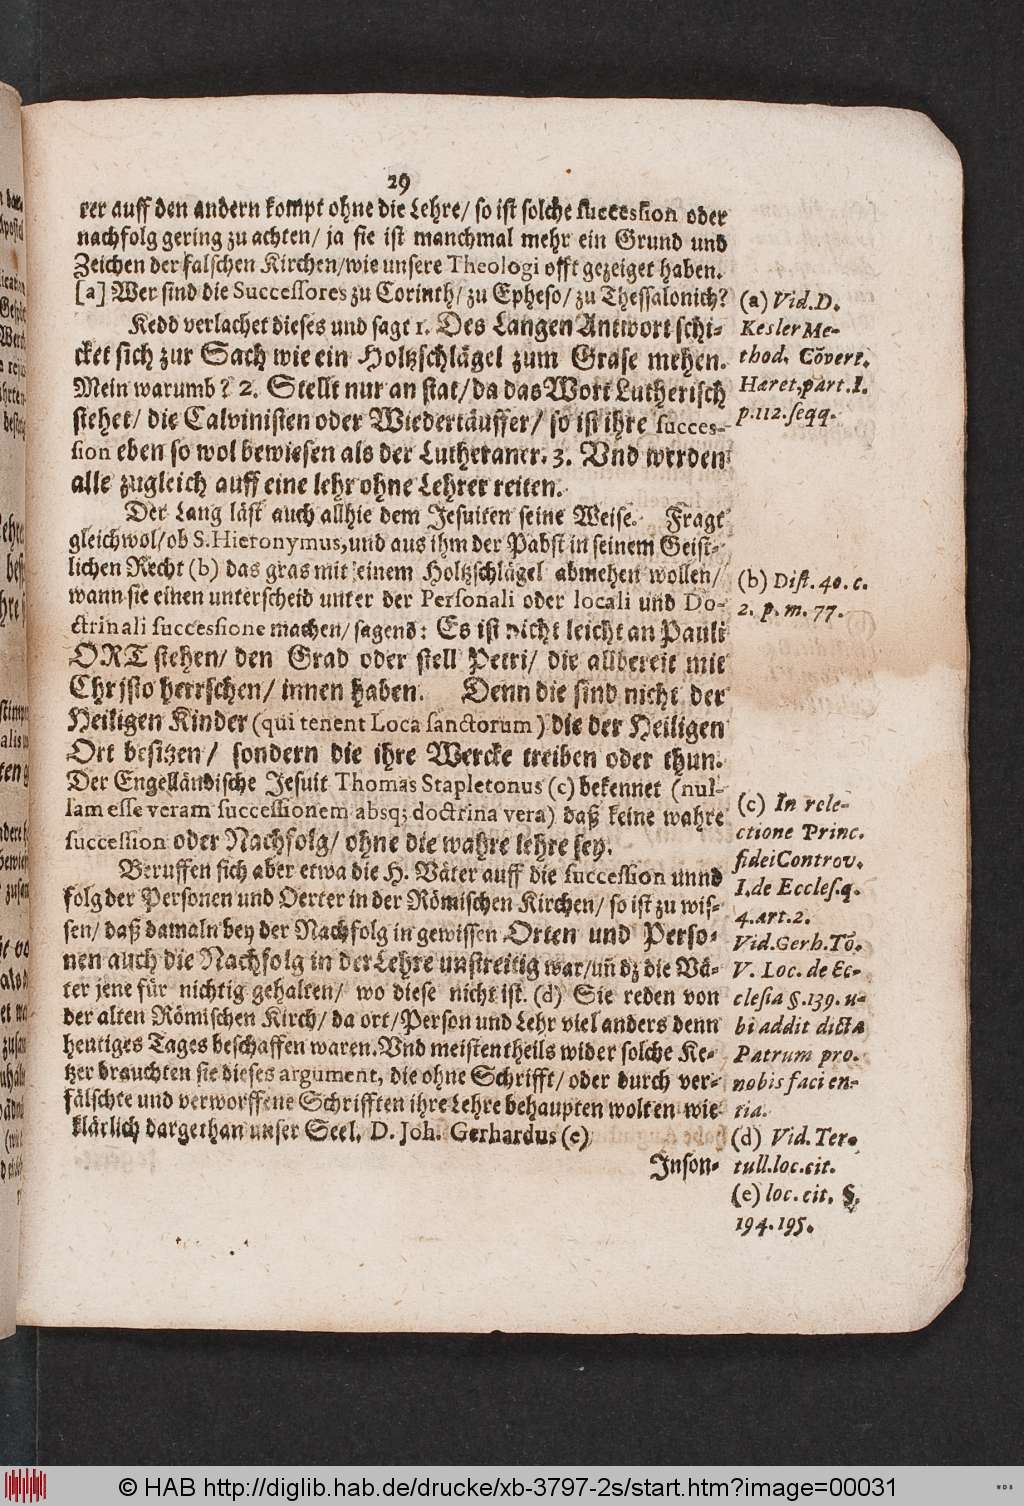 29
rer auff den andern kompt ohne die Lehre/ so ist solche succession oder
nachfolg gering zu achten/ ja sie ist manchmal mehr ein Grund und
Zeichen der falschen Kirchen/wie unsere Theologi offt gezeiget haben.
[a] Wer sind die Successores zu Corinth/ zu Epheso/ zu Thessalonich?
Kedd verlachet dieses und sagt 1. Des Langen Antwort schi-
cket sich zur Sach wie ein Holtzschlägel zum Grase mehen.
Mein warumb? 2. Stellt nur an stat/ da das Wort Lutherisch
stehet/ die Calvinisten oder Wiedertäuffer/ so ist ihre succes-
sion eben so wol bewiesen als der Lutheraner. 3. Vnd werden
alle zugleich auff eine lehr ohne Lehrer reiten.
Der Lang läst auch allhie dem Jesuiten seine Weise. Fragt
gleichwol/ob S. Hieronymus, und aus ihm der Pabst in seinem Geist-
lichen Recht (b) das gras mit einem Holtzschlägel abmehen wollen/
wann sie einen unterscheid unter der Personali oder locali und Do-
ctrinali successione machen/ sagend: Es ist nicht leicht an Pauli
ORT stehen/ den Grad oder stell Petri/ die allbereit mit
Christo herrschen/ innen haben. Denn die sind nicht der
Heiligen Kinder (qui tenent Loca sanctorum) die der Heiligen
Ort besitzen/ sondern die ihre Wercke treiben oder thun.
Der Engelländische Jesuit Thomas Stapletonus (c) bekennet (nul-
lam esse veram successionem absq; doctrina vera) daß keine wahre
succession oder Nachfolg/ ohne die wahre lehre sey.
Beruffen sich aber etwa die H. Väter auff die succession unnd
folg der Personen und Oerter in der Römischen Kirchen/ so ist zu wis-
sen/ daß damaln bey der Nachfolg in gewissen Orten und Perso-
nen auch die Nachfolg in der Lehre unstreitig war/ uñ dz die Vä-
ter jene für nichtig gehalten/ wo diese nicht ist. (d) Sie reden von
der alten Römischen Kirch/ da ort/Person und Lehr viel anders denn
heutiges Tages beschaffen waren. Vnd meistentheils wider solche Ke-
tzer brauchten sie dieses argument, die ohne Schrifft/ oder durch ver-
fälschte und verworffene Schrifften ihre Lehre behaupten wolten wie
klärlich dargethan unser Seel. D. Joh. Gerhardus (e)
Inson-
(a) Vid. D.
Kesler Me-
thod. Cõvert.
Hæret. part. I.
p. 112. seqq.
(b) Dist. 40. c.
2. p. m. 77.
(c) In rele-
ctione Princ.
fidei Controv.
I. de Eccles. q.
4. art. 2.
Vid. Gerh. Tõ.
V. Loc. de Ec-
clesia §. 139. u-
bi addit dicta
Patrum pro
nobis facien-
tia.
(d) Vid. Ter-
tull. loc. cit.
(e) loc. cit. §.
194. 195.
© HAB http://diglib.hab.de/drucke/xb-3797-2s/start.htm?image=00031